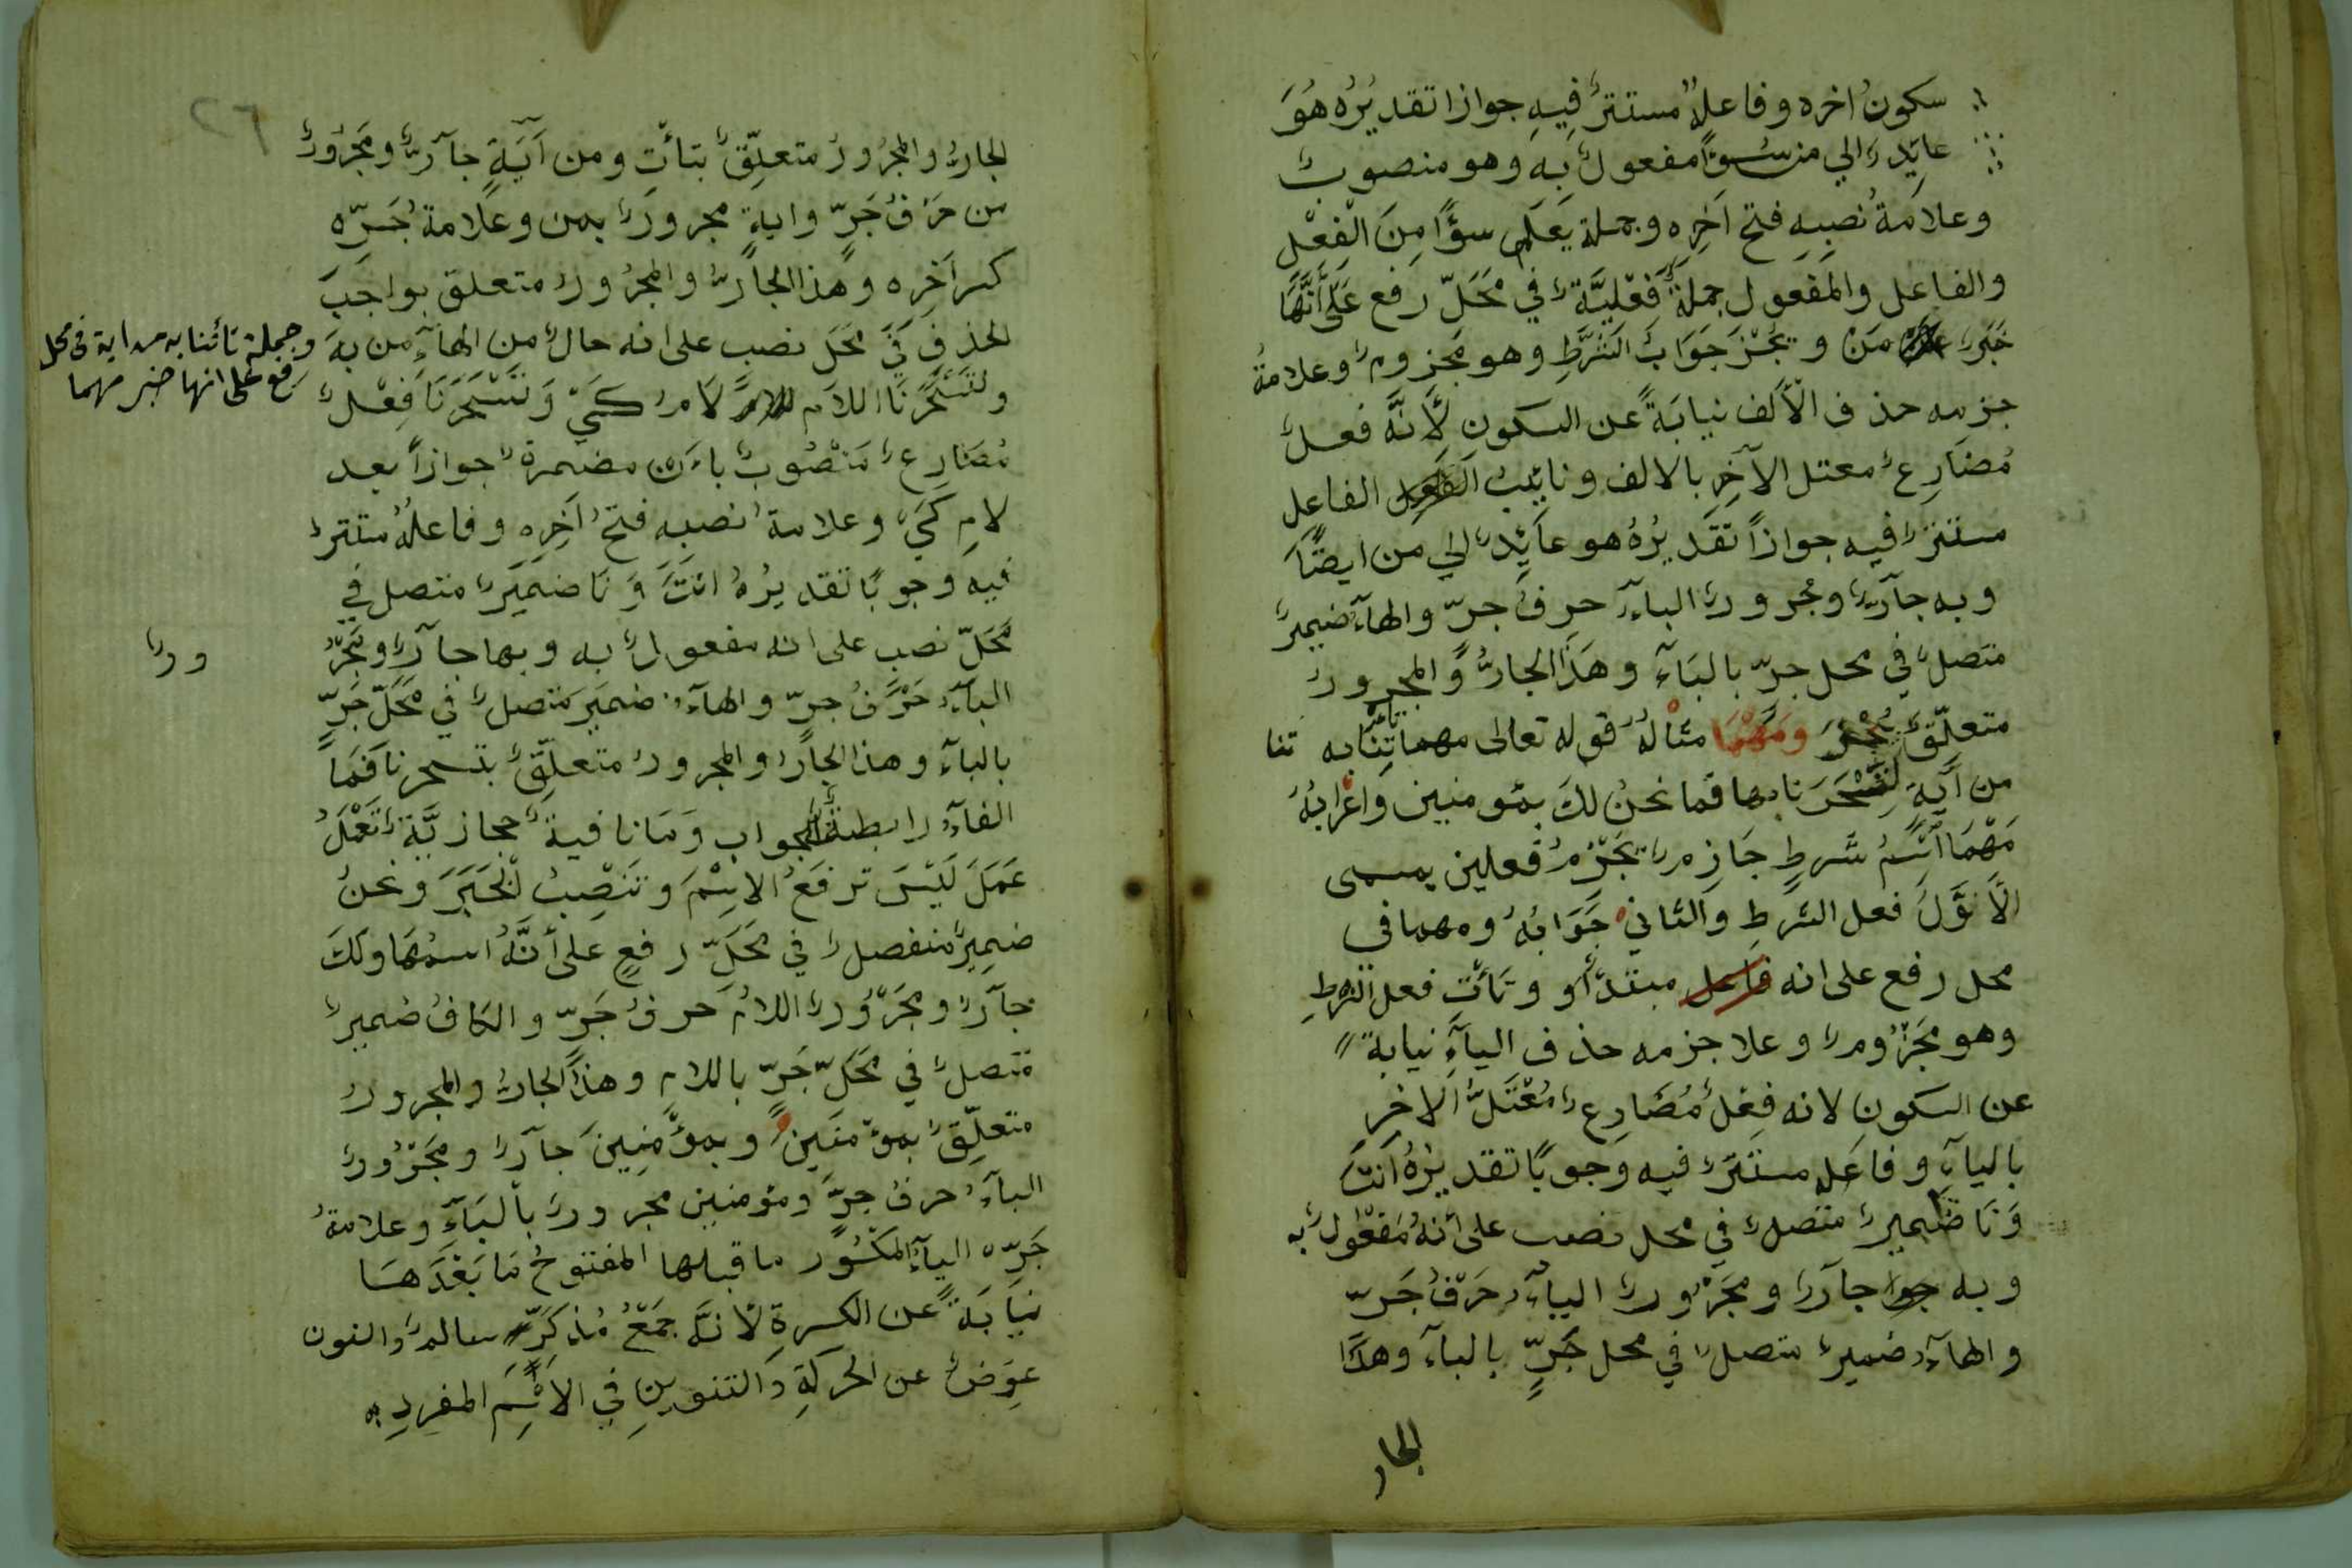 سكونُ اخره وفاعلهُ مستترٌ فيهِ جوازا تقديرُه هُوَ
عايِدٌ الي من سُوًٓا مفعولٌ بِه وهو منصوبٌ
وعلامَةُ نصبِهِ فتح اَخِرِه وجملة يَعمل سؤًا مِنَ الْفِعْلِ
والفاعل والمفعول جملةٌ فِعْليَّةٌ في مَحَلّ رفع عَلَي أَنَّهَا
خَبَرٌ مَنْ ويُجْزَ جَوَابُ الشَّرْطِ وهو مَجزومٌ وعلامةُ
جزمه حذف الْأَلف نيابَةً عن السكون لِأَنَّه فعلٌ
مُضَارِعٌ معتل الآخِر بالالف ونايِبُ الفاعل
مستترٌ فيه جوازاً تقديرُهُ هو عايِدٌ الي من ايضًا
وبه جآرٌّ ومجرورٌ البآءُ حرفُ جرّ والهآءُ ضميرٌ
متصلٌ في محل جرّ بالبَآءِ وهَذَا الجارُّ وَالمجرورُ
متعلّقٌ بيُجْزَ وَمَهْمَا مثالُهُ قوله تعالى مهما تأتنا به تنا
من آيَةٍ لِتَسْحَرَنا بها فما نحنُ لكَ بمؤمنين وَاعْرابُهُ
مَهْمَا اسْمُ شَرطٍ جَازِمٌ يَجْزِمُ فعلين يسمى
الْأَوَّلُ فعل الشرطِ والثاني جَوَابُهُ ومهما في
محل رفع على انه فاعل مبتدأو وتَأتِ فعل الشرطِ
وهو مَجْزُومٌ وعلا جزمه حذف اليآءِ نيابةً
عن السكون لانه فِعْلٌ مُضَارِعٌ مُعْتَلُّ الاخِرِ
باليآءِ وفاعله مستَتِرٌ فيه وجوبًا تقديرُهُ اَنتَ
وَنَا ضَميرٌ متصلٌ في محل نصب على أنهُ مَفعُولٌ به
وبه جوا جآرٌ ومَجْرُورٌ البآءُ حَرْفُ جَرّ
والهآءُ ضميرٌ متصلٌ في محل جَرٍّ بالبآءِ وهذا
الجار
٢٦
الجارُّ والمجرُورُ متعلِّقٌ بتأتِ ومن آيَةٍ جآرٌّ ومَجْرُورٌ
من حَرْفُ جَرّ وايةٍ مجرورٌ بمن وعَلَامةُ جَرِّه
كسر آخِرِه وهذا الجارُّ والمجرُورُ متعلق بواجب
الحذف فِي مَحَل نصب على انه حالٌ من الهآءِ من بِهِ
وجملة تأتنا به من اية في محل
رفع على انها خبر مهما
ولتَسْحَرَنَا اللَام لَامُ كَيْ وَتَسْحَرَنَا فِعْلٌ
مُضَارِعٌ مَنْصُوبٌ باَنْ مضمرةٌ جوازاً بعد
لامِ كَيْ وعلامةُ نصبه فتحُ اَخِرِه وفاعلُهُ مستترٌ
فيه وجوبًا تقديرُهُ انتَ وَنَا ضميرٌ متصل فِي
مَحَلّ نصب على انه مفعولٌ به وبها جآرٌ ومَجْرُ
ورٌ
البآءُ حَرْفُ جرّ والهآءُ ضمير متصلٌ في مَحَلّ جَرٍّ
بالبآءِ وهذا الجارُ والمجرورُ متعلّقٌ بتسحرنا فَمَا
الفآءُ رابطةٌ للجواب وَمَا نافيةٌ حجازيَّةٌ تَعْمَلُ
عَمَلَ لَيْسَ ترفَعُ الاِسْمَ وتَنْصِبُ الْخَبَرَ ونَحنُ
ضميرٌ منفصلٌ في مَحَلّ رفعٍ على أَنَّهُ اسمُهَا ولَكَ
جآرٌ ومَجْرُورٌ اللامُ حرفُ جَرّ والكافُ ضميرٌ
متصلٌ في مَحَلّ جَرّ باللام وهذا الجارُّ والمجرورُ
متعلِّقٌ بمؤمنين وبمؤْمِنِينَ جآرٌ ومَجْرُورٌ
البآءُ حرفُ جرّ ومؤمنين مجرورٌ بالبَآءِ وعلامةُ
جَرِّه اليآءُ المكْسُور ما قبلها المفتوحُ مَا بَعْدَهَا
نيَابَةً عن الكسرةِ لأَنَّه جَمْعُ مُذكرٍ سالمٌ والنون
عِوَضٌ عن الحركَةِ والتنوينِ فِي الاسْمِ المفردِ